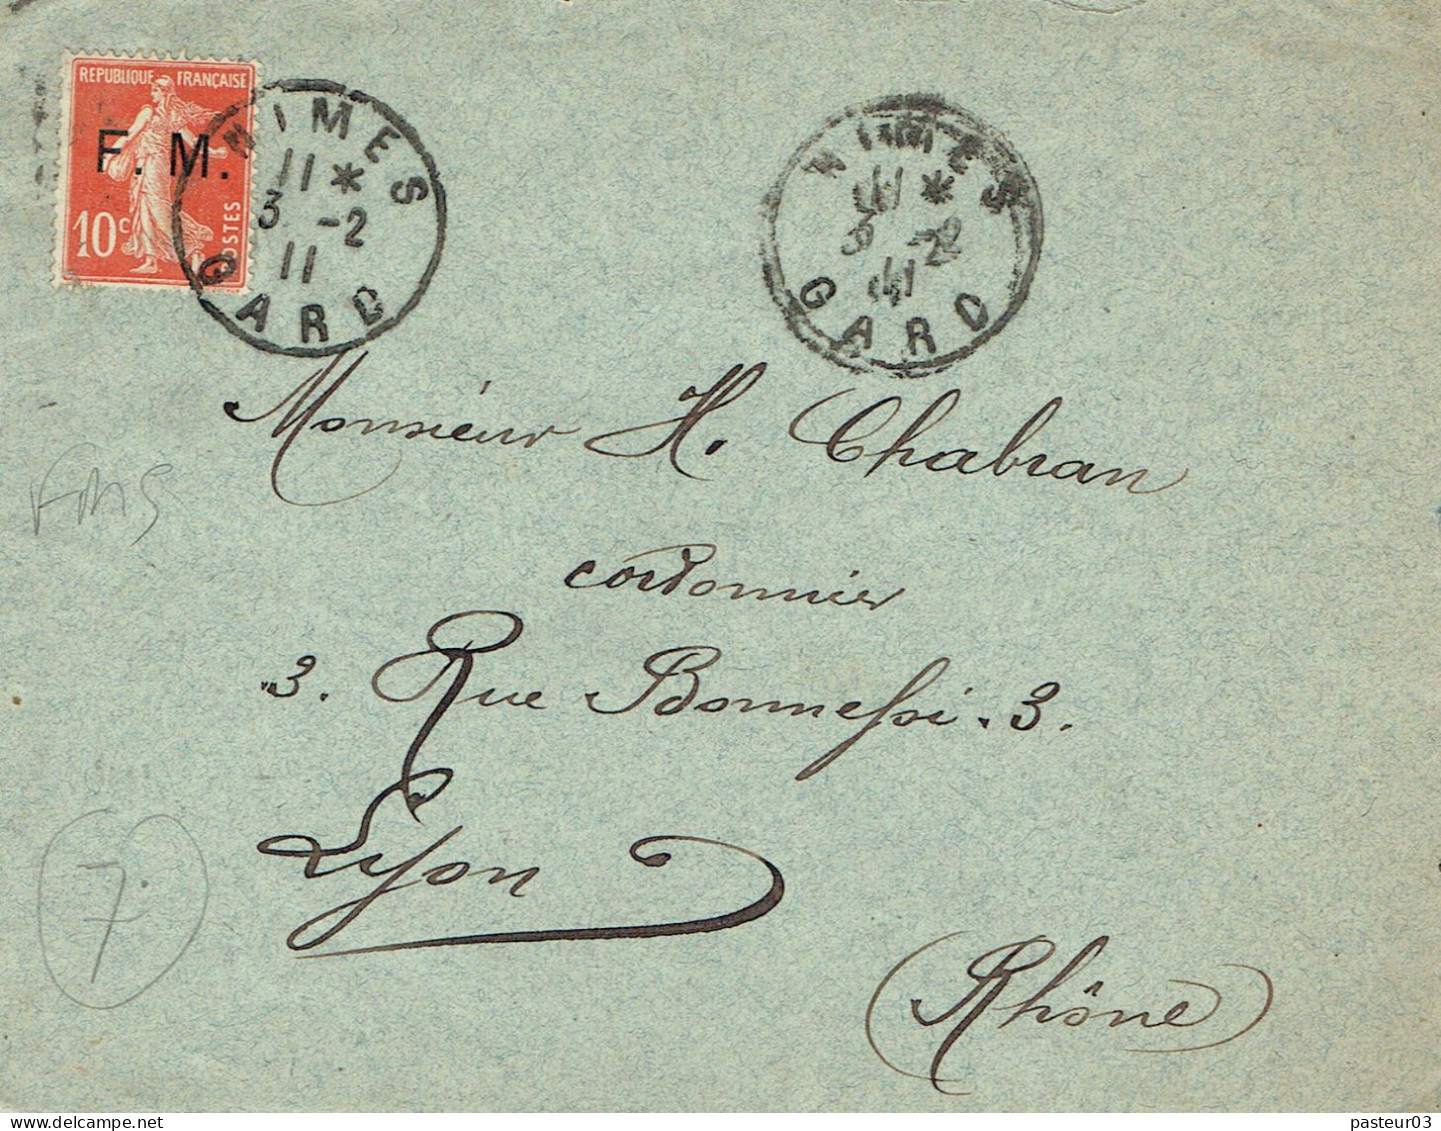 REPUBLIQUE FRANÇAISE
F. M.
10c
POSTES
NIMES
11 *
3 -2
11
GARD
NIMES
GARD
Monsieur H. Chabran
cordonnier
3. Rue Bonnefoi. 3.
Lyon
(Rhône)
FM5
7
pasteur03